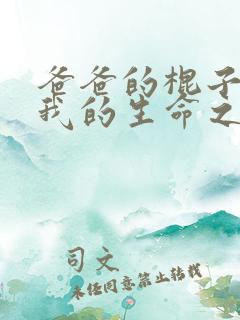 爸爸的棍子
我的生命之
司文
未经同意禁止转载